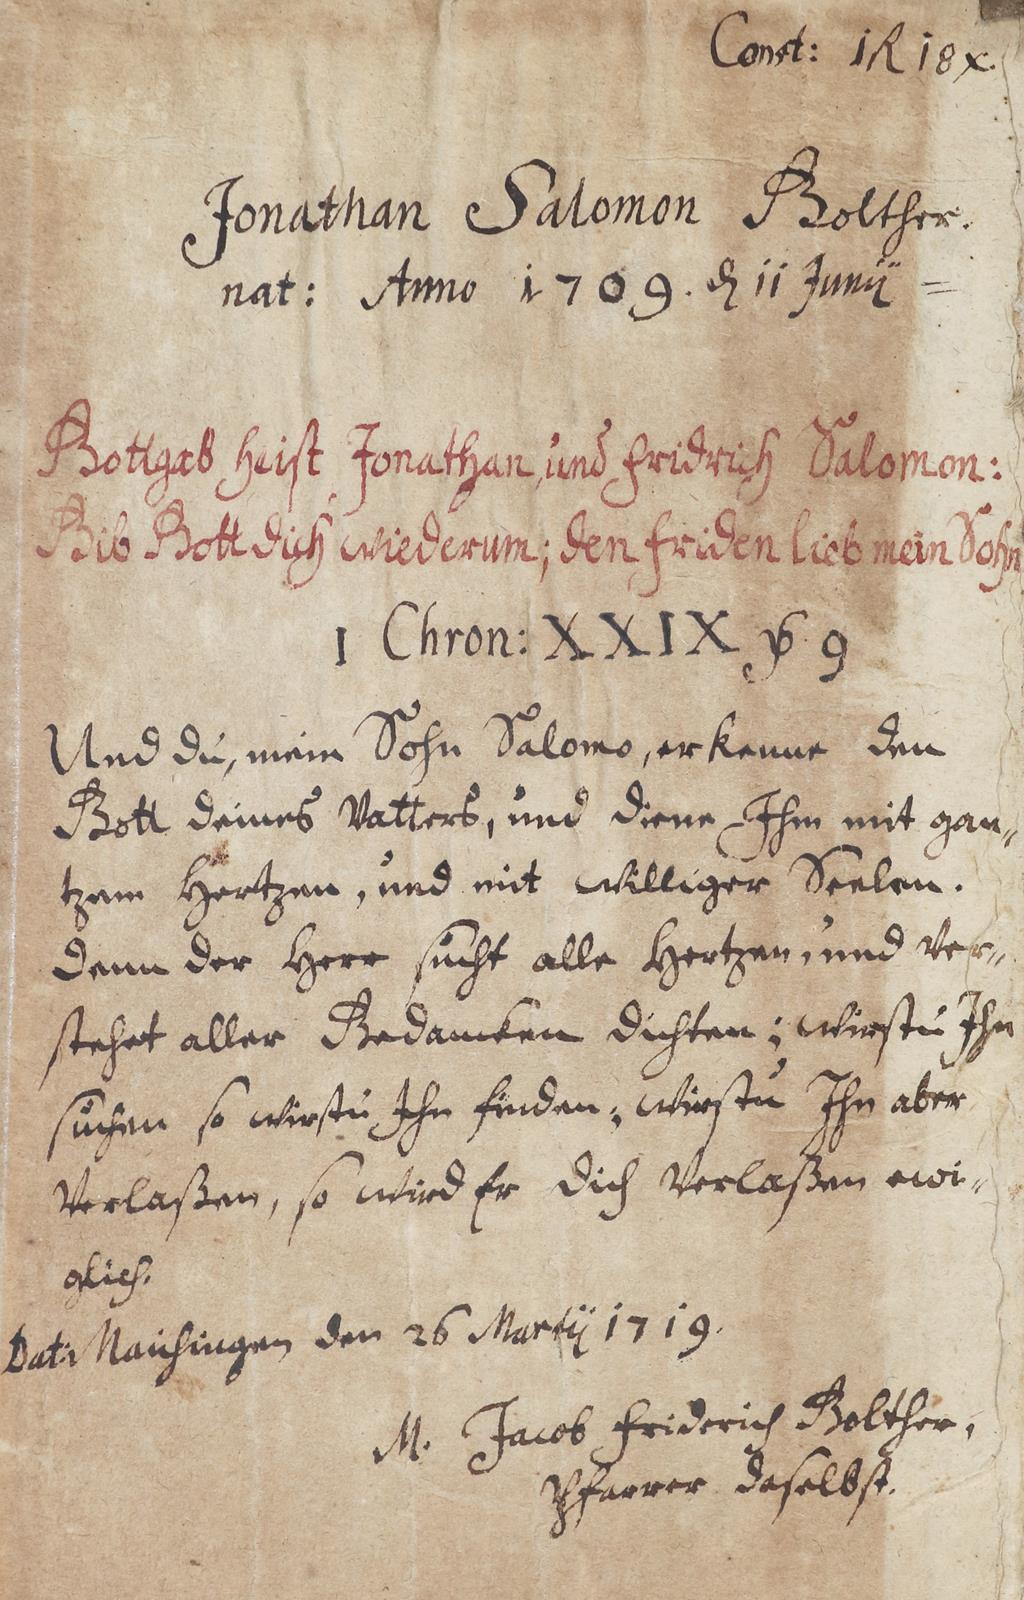 Const: 1 R 18 x.
Jonathan Salomon Golther.
nat: Anno 1709. d 11 Junij
Gottgab heist Jonathan, und fridrich Salomon:
Gib Gott dich wiederum; den friden lieb mein Sohn
1 Chron: XXIX ꝟ 9
Und du, mein Sohn Salomo, erkenne den
Gott deines Vatters, und diene Ihm mit gan„
tzem Hertzen, und mit williger Seelen.
denn der Herr sucht alle Hertzen, und ver„
stehet aller Gedancken dichten; wirstu Ihn
suchen so wirstu Ihn finden; wirstu Ihn aber
verlaßen, so wird Er dich verlaßen ewi„
glich.
Dat: Maichingen den 26 Martij 1719.
M. Jacob friderich Golther,
Pfarrer daselbst.